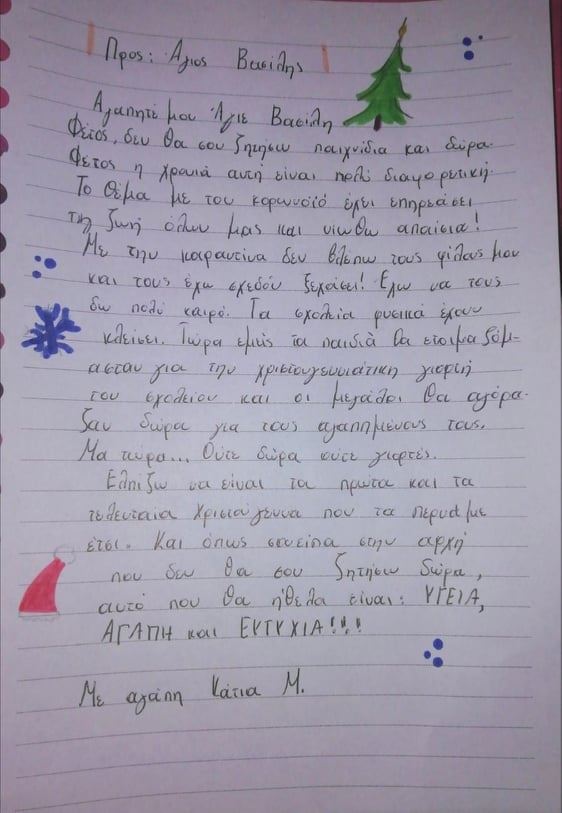 Προς: Άγιος Βασίλης
Αγαπητέ μου Άγιε Βασίλη
Φέτος, δεν θα σου ζητήσω παιχνίδια και δώρα.
Φέτος η χρονιά αυτή είναι πολύ διαφορετική.
Το θέμα με τον κορωνοϊό έχει επηρεάσει
τη ζωή όλων μας και νιώθω απαίσια!
Με την καραντίνα δεν βλέπω τους φίλους μου
και τους έχω σχεδόν ξεχάσει! Έχω να τους
δω πολύ καιρό. Τα σχολεία φυσικά έχουν
κλείσει. Τώρα εμείς τα παιδιά θα ετοιμαζόμ-
ασταν για την χριστουγεννιάτικη γιορτή
του σχολείου και οι μεγάλοι θα αγόρα-
ζαν δώρα για τους αγαπημένους τους.
Μα τώρα... Ούτε δώρα ούτε γιορτές.
Ελπίζω να είναι τα πρώτα και τα
τελευταία Χριστούγεννα που τα περνάμε
έτσι. Και όπως σου είπα στην αρχή
που δεν θα σου ζητήσω δώρα,
αυτό που θα ήθελα είναι: ΥΓΕΙΑ,
ΑΓΑΠΗ και ΕΥΤΥΧΙΑ!!!
Με αγάπη Κάτια Μ.